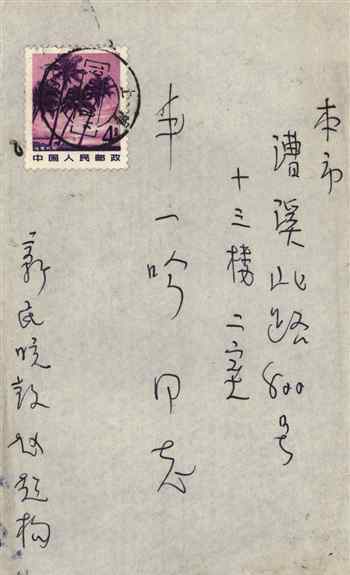 本市
漕溪北路800号
十三楼二室
丰一吟 同志
新民晚报赵超构
中国人民邮政